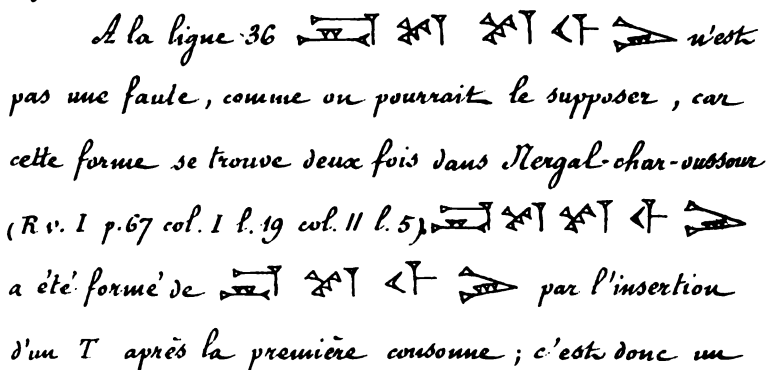 A la ligne 36 n'est
pas une faute, comme on pourrait le supposer, car
cette forme se trouve deux fois dans Nergal-char-oussour
(R v. I p. 67 col. I l. 19 col. II l. 5).
a été formé de par l'insertion
d'un T après la première consonne ; c'est donc un